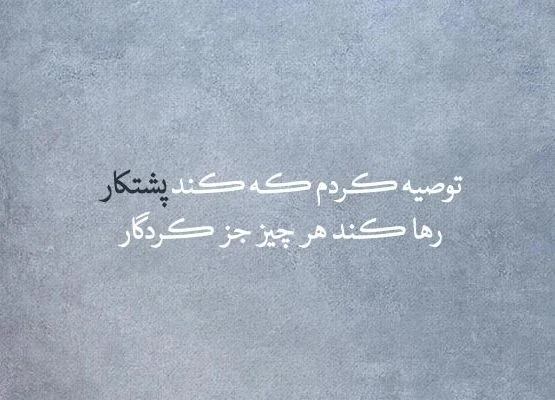 توصیه کردم که کند پشتکار
رها کند هر چیز جز کردگار